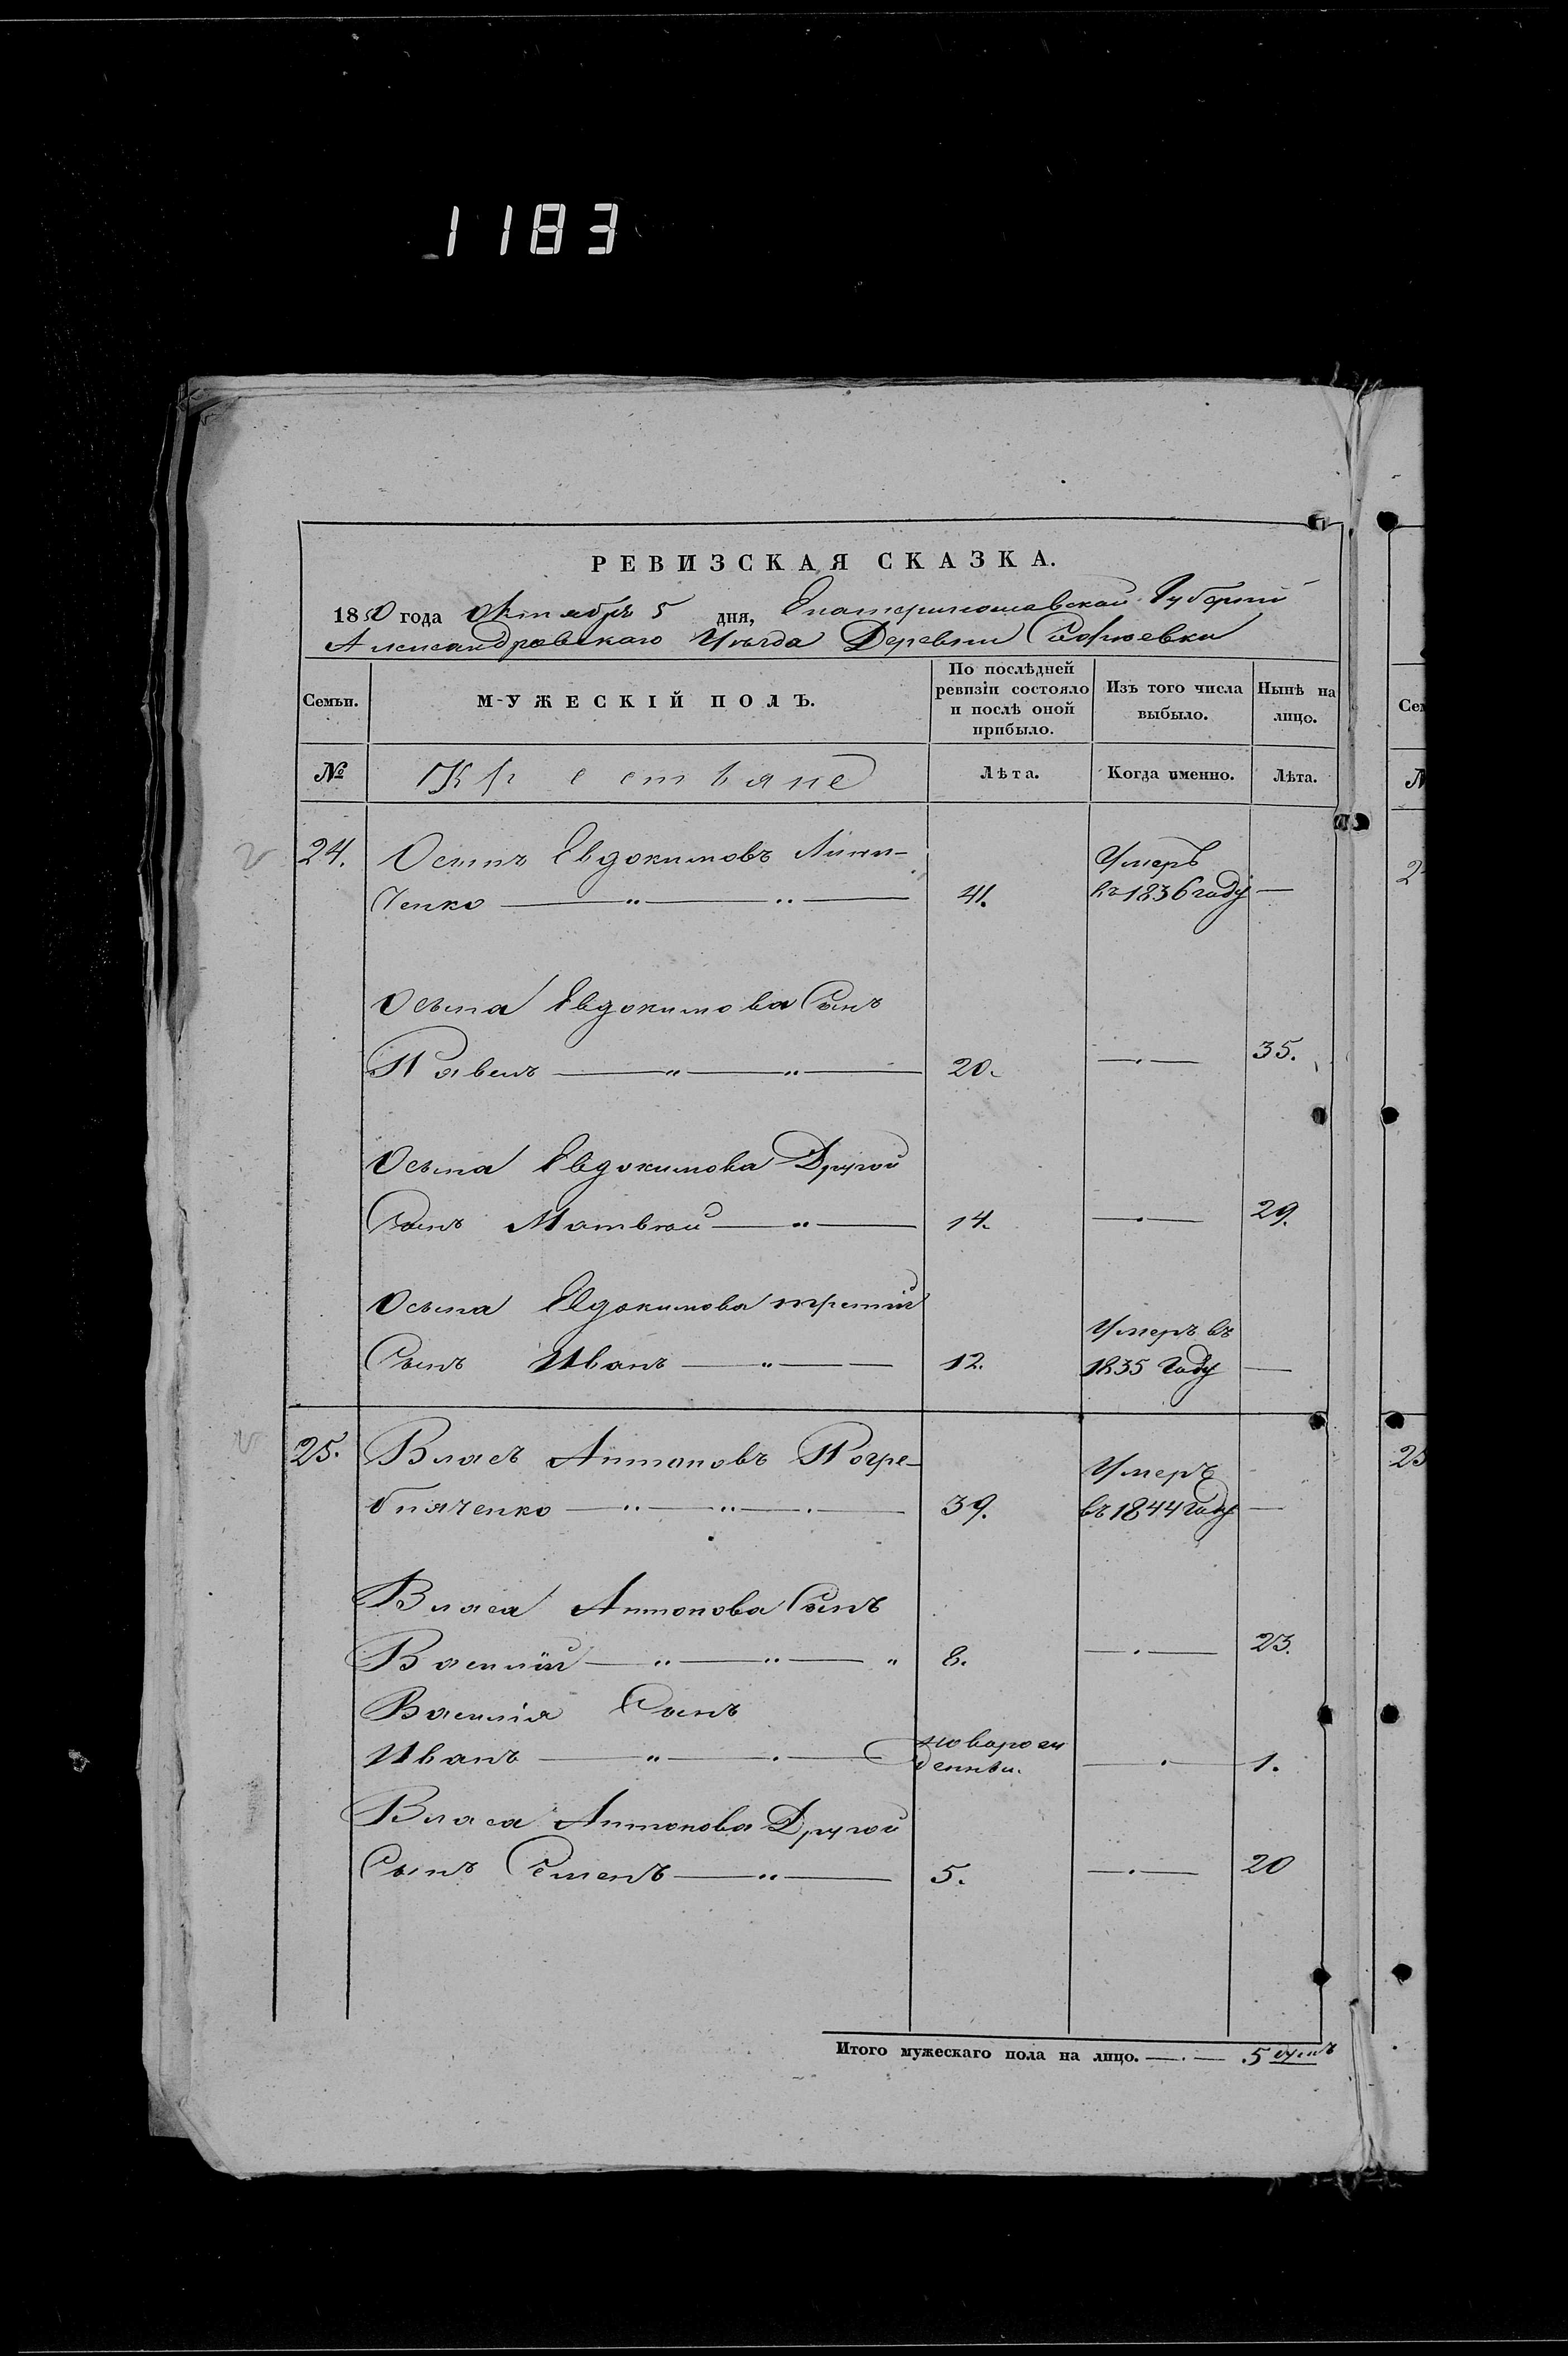 1183
РЕВИЗСКАЯ СКАЗКА.
1850 года Октября 5 дня, Екатеринославской Губерніи
Александровскаго Уѣзда Деревни Софіевки
Семьи. МУЖЕСКІЙ ПОЛЪ. По послѣдней ревизіи состояло и послѣ оной прибыло. Изъ того числа выбыло. Нынѣ на лицо.
№ Крестьяне Лѣта. Когда именно. Лѣта.
24. Осипъ Евдокимовъ Умеръ
ченко 41. въ 1836 году —
Осипа Евдокимова Сынъ
Павелъ 20. — 35.
Осипа Евдокимова Другой
Сынъ Матвѣй 14. — 29.
Осипа Евдокимова третій Умеръ въ
Сынъ Иванъ 12. 1835 Году —
25. Власъ Антоновъ Погре- Умеръ
бняченко 39. въ 1844 Году —
Власа Антонова Сынъ
Василій 8. — 23.
Василія Сынъ
Иванъ новорож
денный. — 1.
Власа Антонова Другой
Сынъ Семенъ 5. — 20
Итого мужескаго пола на лицо. — 5 душъ
Сем
№
2
25